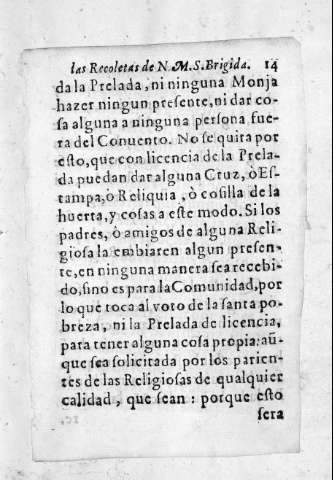 las Recoletas de N. M. S. Brigida. 14
da la Prelada, ni ninguna Monja
hazer ningun presente, ni dar co-
sa alguna a ninguna persona fue-
ra del Conuento. No se quita por
esto, que con licencia de la Prela-
da puedan dar alguna Cruz, ò Es-
tampa, ò Reliquia, ò cosilla de la
huerta, y cosas a este modo. Si los
padres, ò amigos de alguna Reli-
giosa la embiaren algun presen-
te, en ninguna manera sea recebi-
do, sino es para la Comunidad, por
lo que toca al voto de la santa po-
breza, ni la Prelada de licencia,
para tener alguna cosa propia: aũ-
que sea solicitada por los parien-
tes de las Religiosas de qualquier
calidad, que sean: porque esto
sera